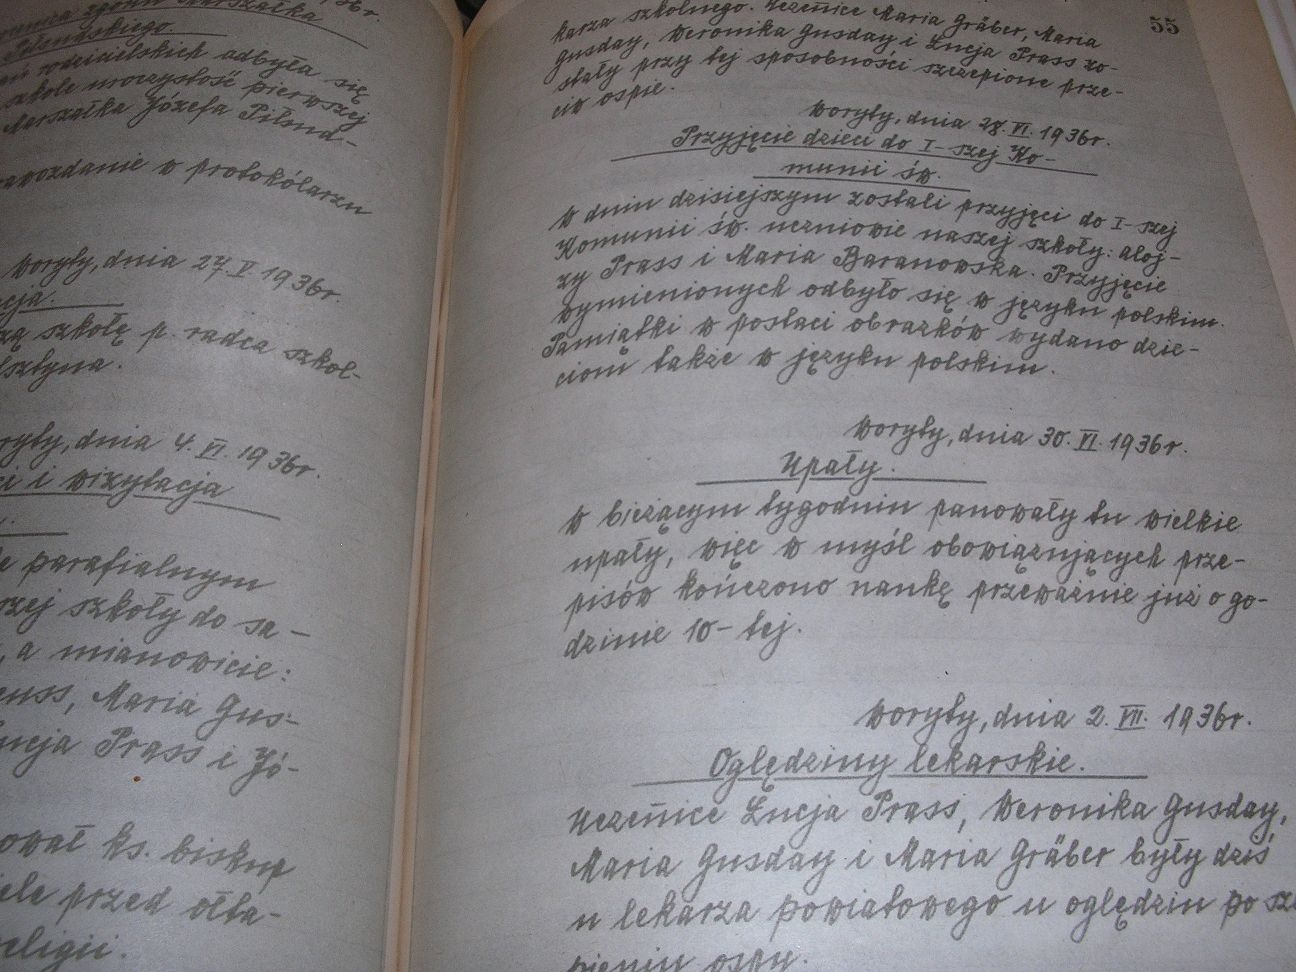 zgonu Marszałka
Piłsudskiego.
odbyła się
szkole uroczystość pierwszej
Marszałka Józefa Piłsud-
w protokólarzu
Woryty, dnia 27. V. 1936r.
szkołę p. radca szkol-
dnia 4. VI. 1936r.
i wizytacja
parafialnym
szkoły do sa-
, a mianowicie:
Maria Gus-
Prass i Jó-
ks. biskup
przed ołta-
55
karza szkolnego. Uczennice Maria Gräber, Maria
Gusday, Weronika Gusday i Łucja Prass zo-
stały przy tej sposobności szczepione prze-
ciw ospie.
Woryty, dnia 28. VI. 1936r.
Przyjęcie dzieci do I-szej Ko-
munii św.
W dniu dzisiejszym zostali przyjęci do I-szej
Komunii św. uczniowie naszej szkoły: Aloj-
zy Prass i Maria Baranowska. Przyjęcie
wymienionych odbyło się w języku polskim.
Pamiątki w postaci obrazków wydano dzie-
ciom także w języku polskim.
Woryty, dnia 30. VI. 1936r.
Upały.
W bieżącym tygodniu panowały tu wielkie
upały, więc w myśl obowiązujących prze-
pisów kończono naukę przeważnie już o go-
dzinie 10-tej.
Woryty, dnia 2. VII. 1936r.
Oględziny lekarskie.
Uczennice Łucja Prass, Weronika Gusday,
Maria Gusday i Maria Gräber były dziś
u lekarza powiatowego u oględzin po
pieniu ospy.